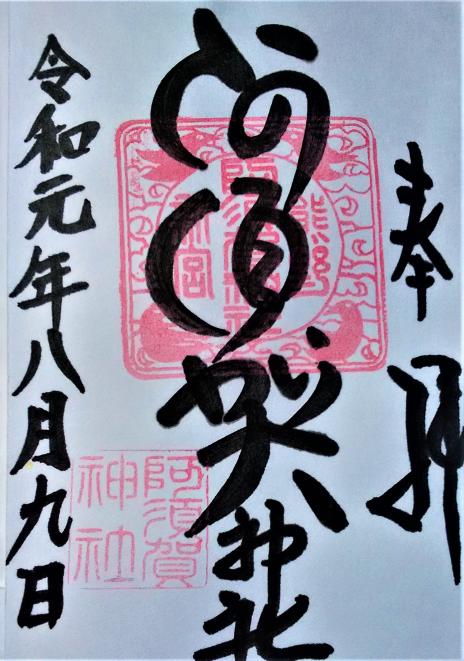 奉拝
阿須賀神社
令和元年八月九日
熊野
阿須賀神社
新宮
阿須賀
神社